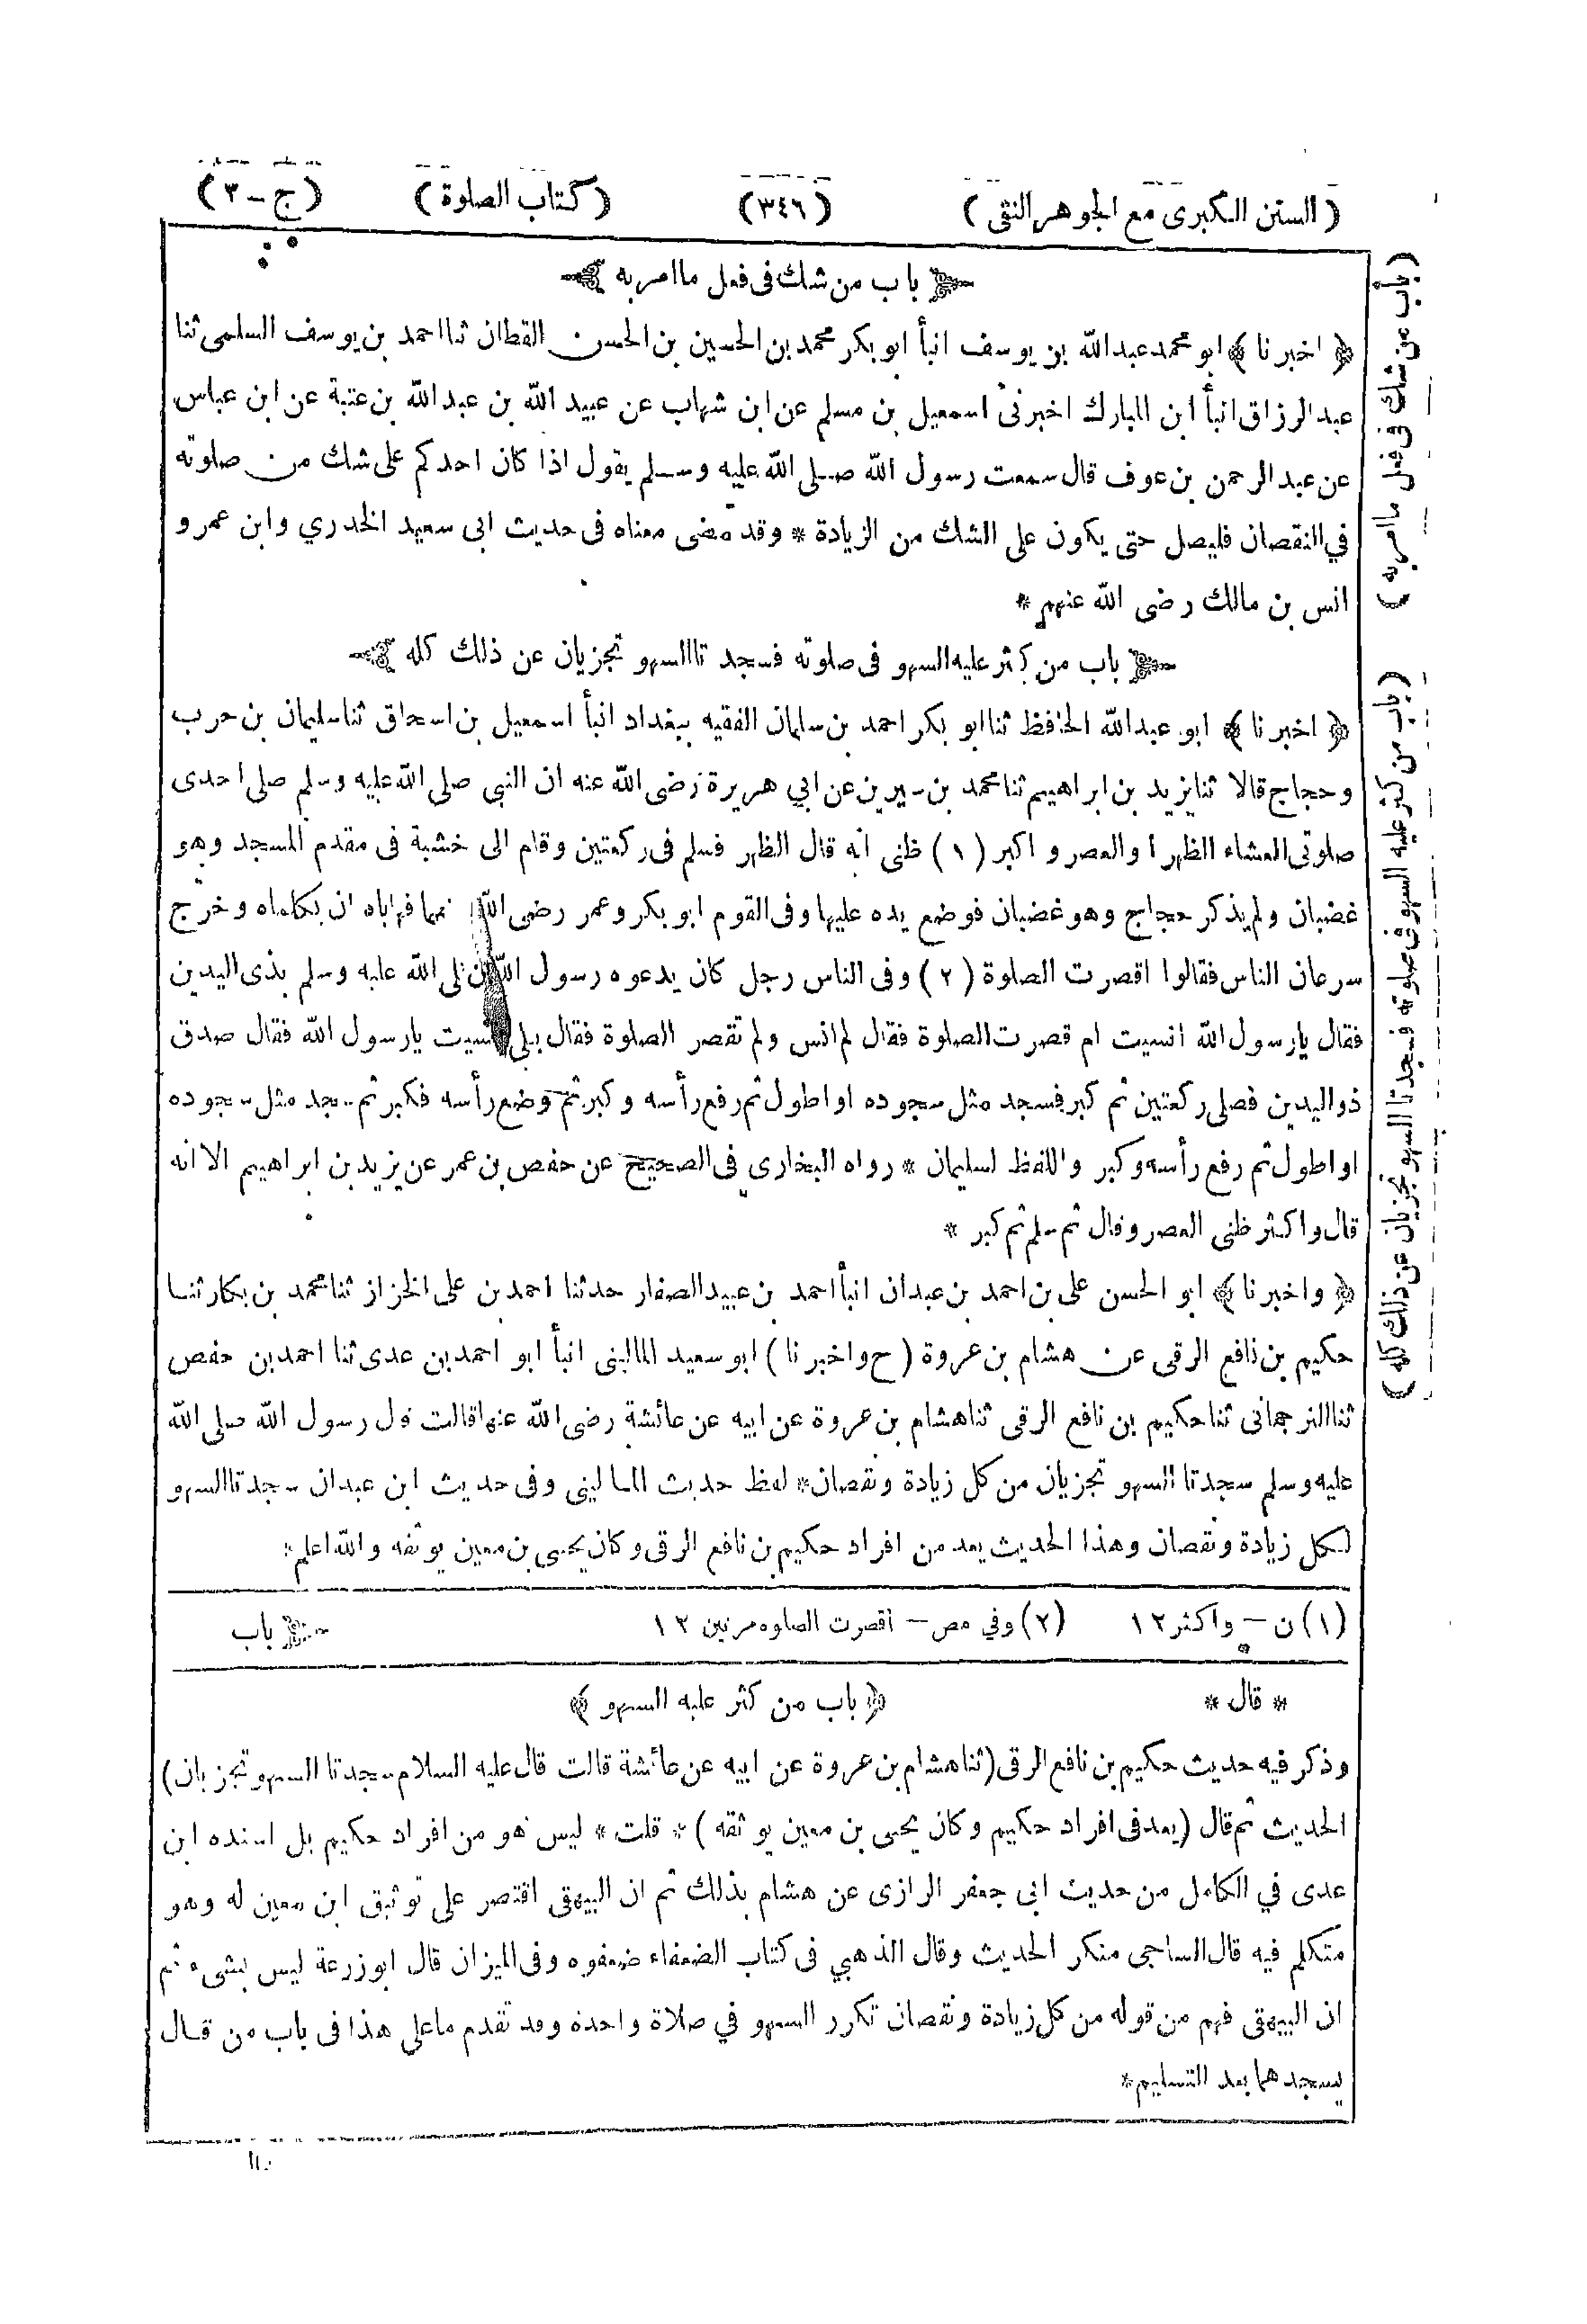 (السنن الكبرى مع الجوهر النقى) (٣٤٦) (كتاب الصلوة) (ج - ٣)
باب من شك فى فعل ما امر به
﴿ اخبرنا ﴾ ابو محمد عبد الله بن يوسف انبأ ابو بكر محمد بن الحسين بن الحسن القطان ثنا احمد بن يوسف السلمى ثنا
عبد الرزاق انبأ ابن المبارك اخبرنى اسمعيل بن مسلم عن ابن شهاب عن عبيد الله بن عبد الله بن عتبة عن ابن عباس
عن عبد الرحمن بن عوف قال سمعت رسول الله صلى الله عليه وسلم يقول اذا كان احدكم على شك من صلوته
في النقصان فليصل حتى يكون على الشك من الزيادة * وقد مضى معناه فى حديث ابى سعيد الخدري وابن عمر و
انس بن مالك رضى الله عنهم *
باب من كثر عليه السهو فى صلوته فسجدتا السهو تجزيان عن ذلك كله
﴿ اخبرنا ﴾ ابو عبد الله الحافظ ثنا ابو بكر احمد بن سلمان الفقيه ببغداد انبأ اسمعيل بن اسحاق ثنا سليمان بن حرب
وحجاج قالا ثنا يزيد بن ابراهيم ثنا محمد بن سيرين عن ابي هريرة رضى الله عنه ان النبى صلى الله عليه وسلم صلى احدى
صلوتى العشاء الظهر او العصر و اكبر (١) ظنى انه قال الظهر فسلم فى ركعتين وقام الى خشبة فى مقدم المسجد وهو
غضبان ولم يذكر حجاج وهو غضبان فوضع يده عليها وفى القوم ابو بكر وعمر رضى الله عنهما فهاباه ان يكلماه وخرج
سرعان الناس فقالوا اقصرت الصلوة (٢) وفى الناس رجل كان يدعوه رسول الله صلى الله عليه وسلم بذى اليدين
فقال يا رسول الله انسيت ام قصرت الصلوة فقال لم انس ولم تقصر الصلوة فقال بلى نسيت يا رسول الله فقال صدق
ذو اليدين فصلى ركعتين ثم كبر فسجد مثل سجوده او اطول ثم رفع رأسه وكبر ثم وضع رأسه فكبر ثم سجد مثل سجوده
او اطول ثم رفع رأسه وكبر واللفظ لسليمان * رواه البخاري فى الصحيح عن حفص بن عمر عن يزيد بن ابراهيم الا انه
قال واكثر ظنى العصر وقال ثم سلم ثم كبر *
﴿ واخبرنا ﴾ ابو الحسن على بن احمد بن عبدان انبأ احمد بن عبيد الصفار حدثنا احمد بن على الخزاز ثنا محمد بن بكار ثنا
حكيم بن نافع الرقى عن هشام بن عروة (ح واخبرنا) ابو سعيد المالينى انبأ ابو احمد بن عدى ثنا احمد بن حفص
ثنا الترجمانى ثنا حكيم بن نافع الرقى ثنا هشام بن عروة عن ابيه عن عائشة رضى الله عنها قالت قال رسول الله صلى الله
عليه وسلم سجدتا السهو تجزيان من كل زيادة ونقصان * لفظ حديث المالينى وفى حديث ابن عبدان سجدتا السهو
لكل زيادة ونقصان وهذا الحديث يعد من افراد حكيم بن نافع الرقى وكان يحيى بن معين يوثقه والله اعلم *
(١) ن - واكثر ١٢ (٢) وفي مص - أقصرت الصلوه مرتين ١٢ باب
* قال * ﴿ باب من كثر عليه السهو ﴾
وذكر فيه حديث حكيم بن نافع الرقى (ثنا هشام بن عروة عن ابيه عن عائشة قالت قال عليه السلام سجدتا السهو تجزيان)
الحديث ثم قال (يعد فى افراد حكيم وكان يحيى بن معين يوثقه) * قلت * ليس هو من افراد حكيم بل اسنده ابن
عدى في الكامل من حديث ابى جعفر الرازى عن هشام بذلك ثم ان البيهقى اقتصر على توثيق ابن معين له وهو
متكلم فيه قال الساجى منكر الحديث وقال الذهبي فى كتاب الضعفاء ضعفوه وفى الميزان قال ابو زرعة ليس بشىء ثم
ان البيهقى فهم من قوله من كل زيادة ونقصان تكرر السهو في صلاة واحدة وقد تقدم ما على هذا فى باب من قال
يسجدهما بعد التسليم *
(باب من شك فى فعل ما امر به)
(باب من كثر عليه السهو فى صلوته فسجدتا السهو تجزيان عن ذلك كله)